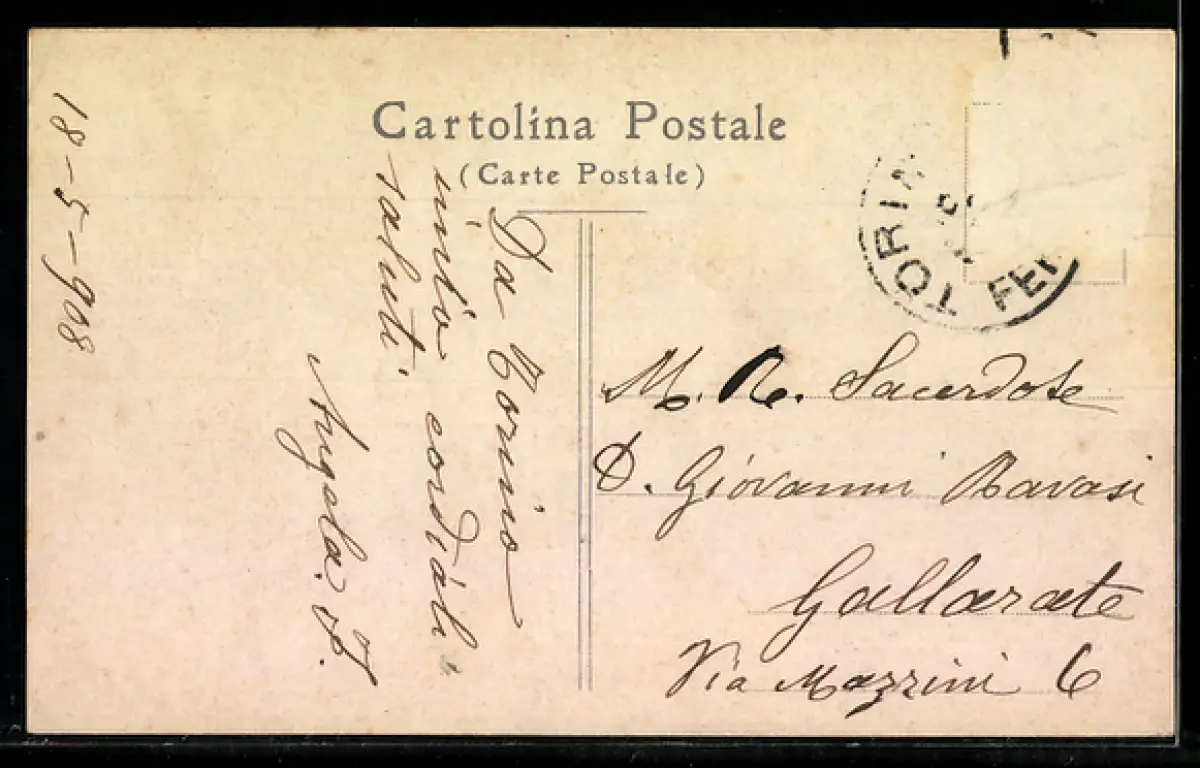 Cartolina Postale
(Carte Postale)
18-5-908
Da Torino
invio cordiali
saluti.
Angela.
TORIN
FER
M. R. Sacerdote
D. Giovanni Ravasi
Gallarate
Via Mazzini 6